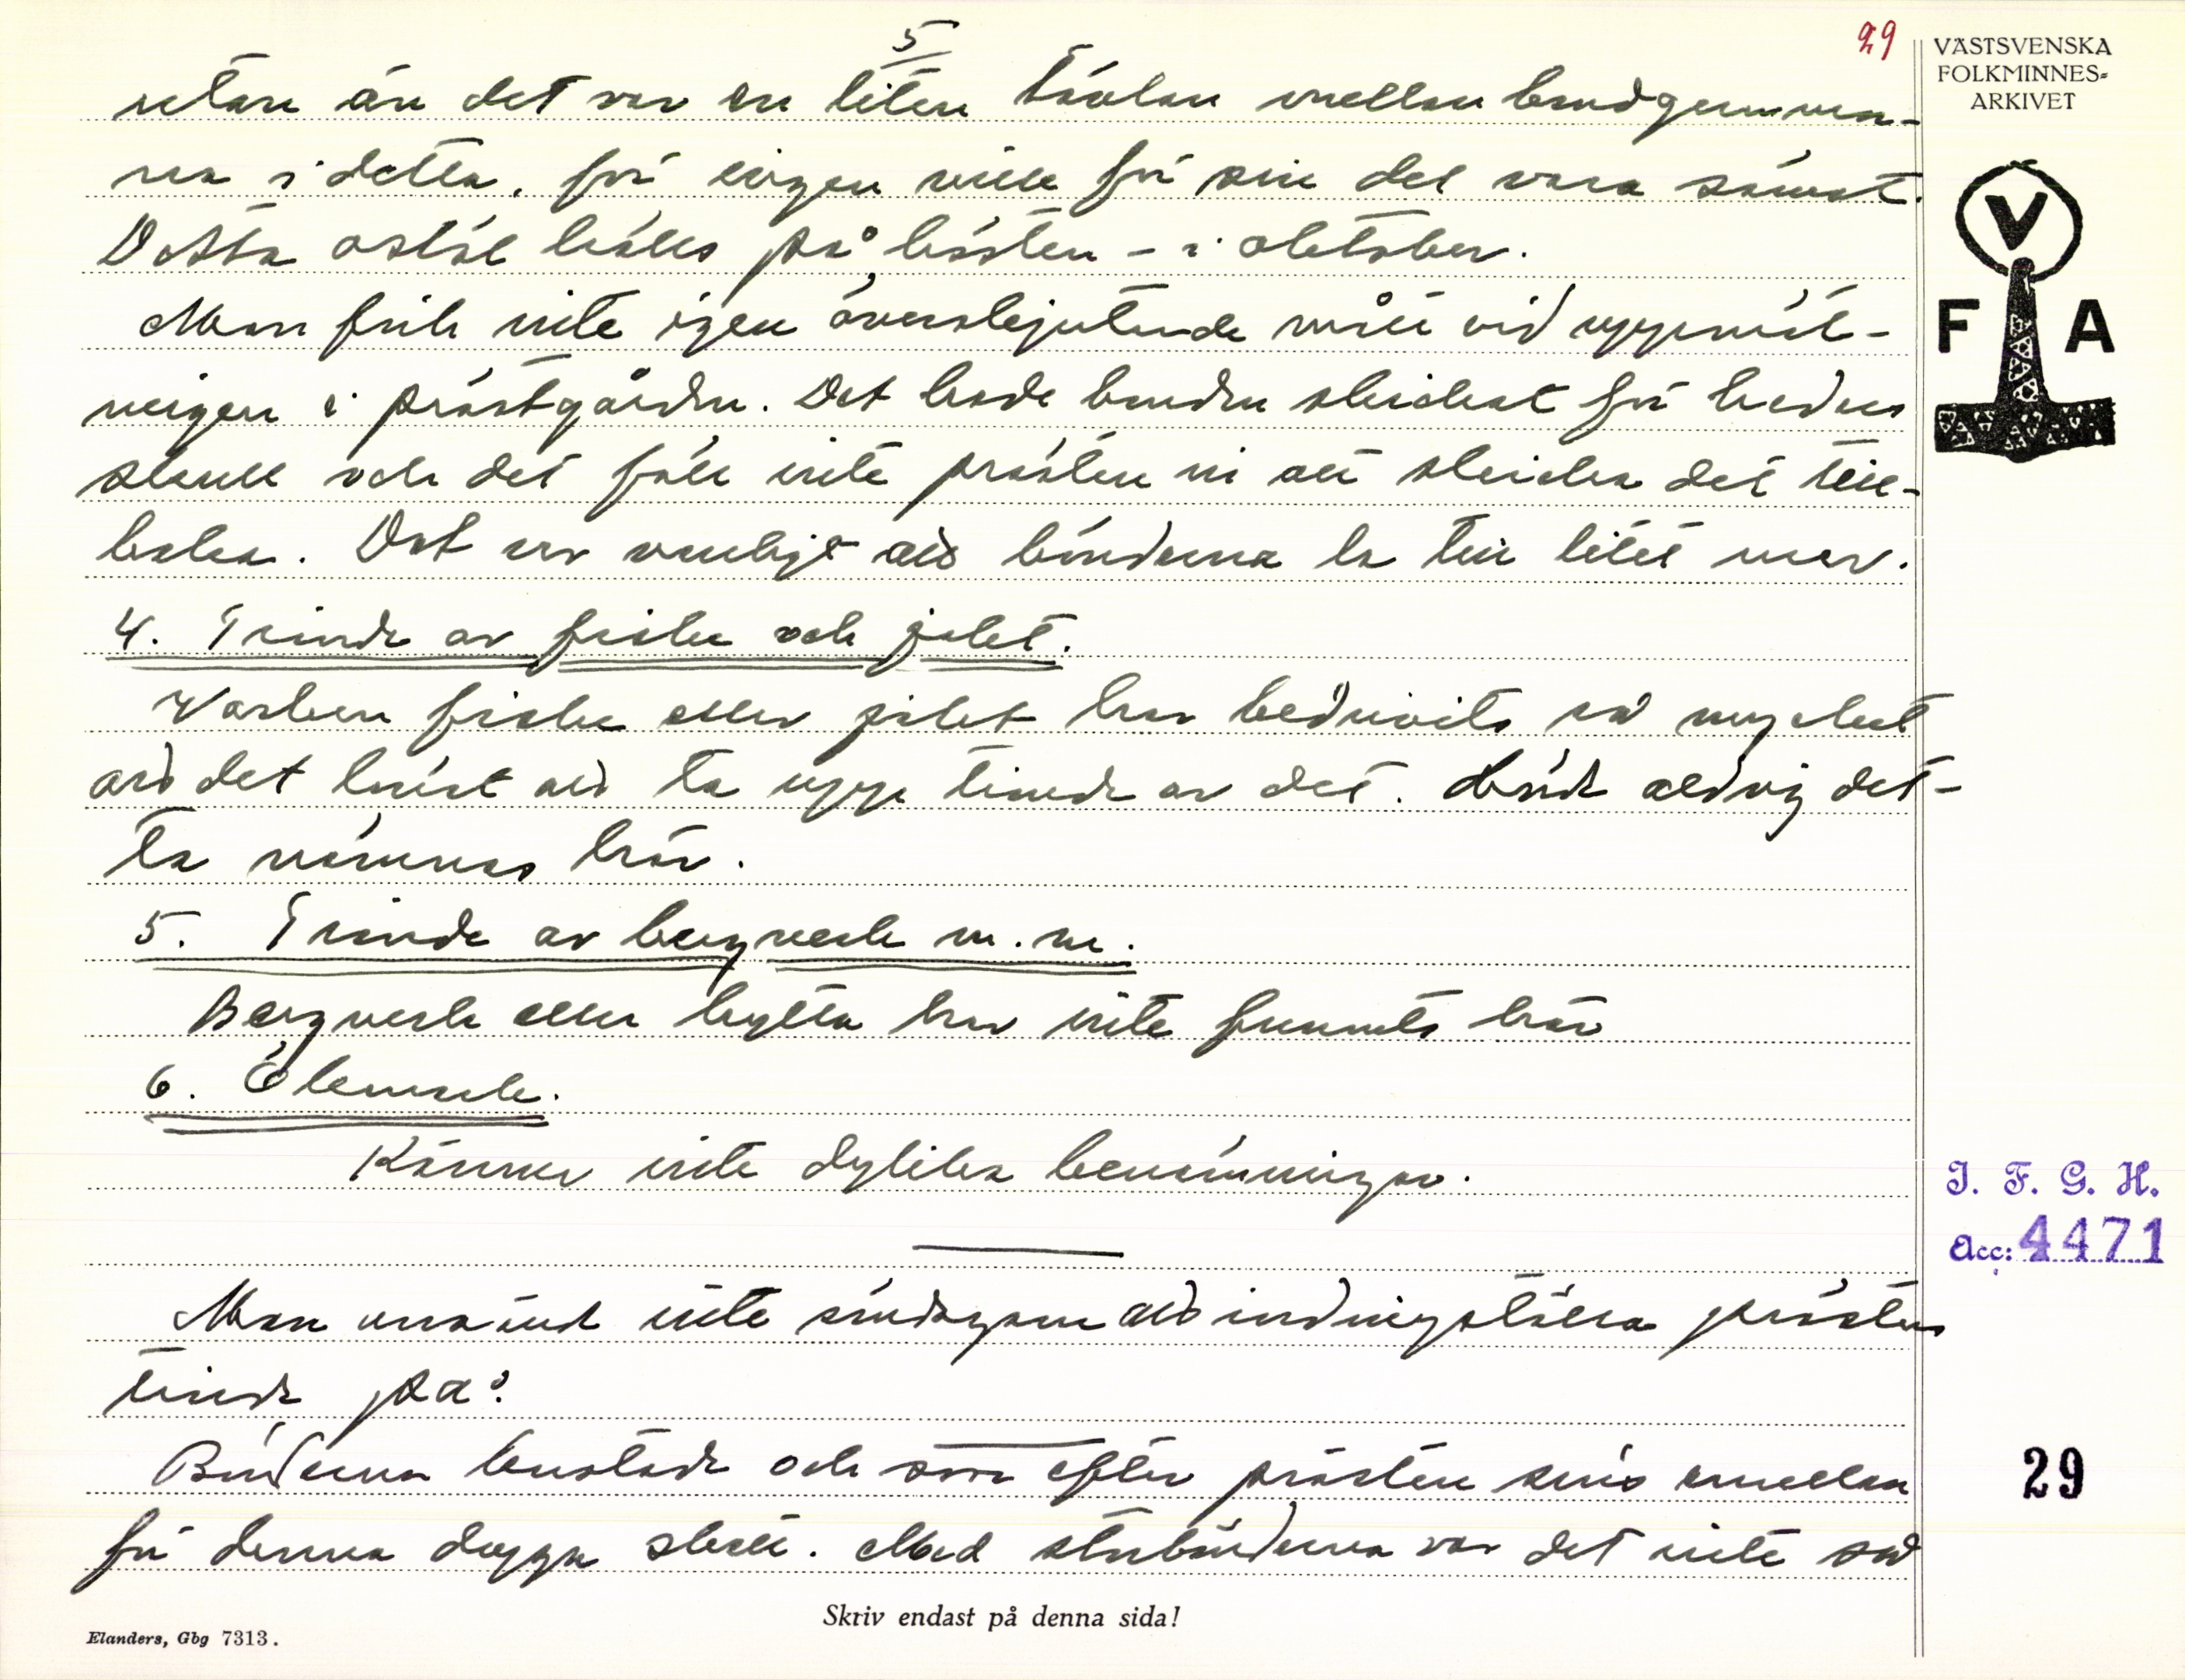 5
29
utan än det var en liten tävlan mellan bondgummor-
na i detta, för ingen ville för sin del vara sämst.
Detta ostål hölls på hösten - i oktober.
Man fick inte igen överskjutende mått vid uppmät-
ningen i prästgården. Det hade bonden skickat för hedens
skull och det föll inte prästen in att skicka det till-
baka. Det var vanligt att bönderna la till litet mer.
4. Tionde av fiske och jakt.
Varken fiske eller jakt har bedrivits så mycket
att det lönt att ta upp tionde av det. Hörde aldrig det-
ta nämnas här.
5. Tionde av bergverk m.m.
Bergverk eller hytta har inte funnits här
6. Ölemele.
Känner inte dylika benämningar.
Man använde inte söndagarna att indrivningställa prästens
tionde på.
Bönderna knotade och svor efter prästen sins emellan
för denna dryga skatt. Med storbönderna var det inte så
Skriv endast på denna sida!
Elanders, Gbg 7313.
VÄSTSVENSKA
FOLKMINNES-
ARKIVET
V
F A
I. F. G. H.
Acc: 4471
29